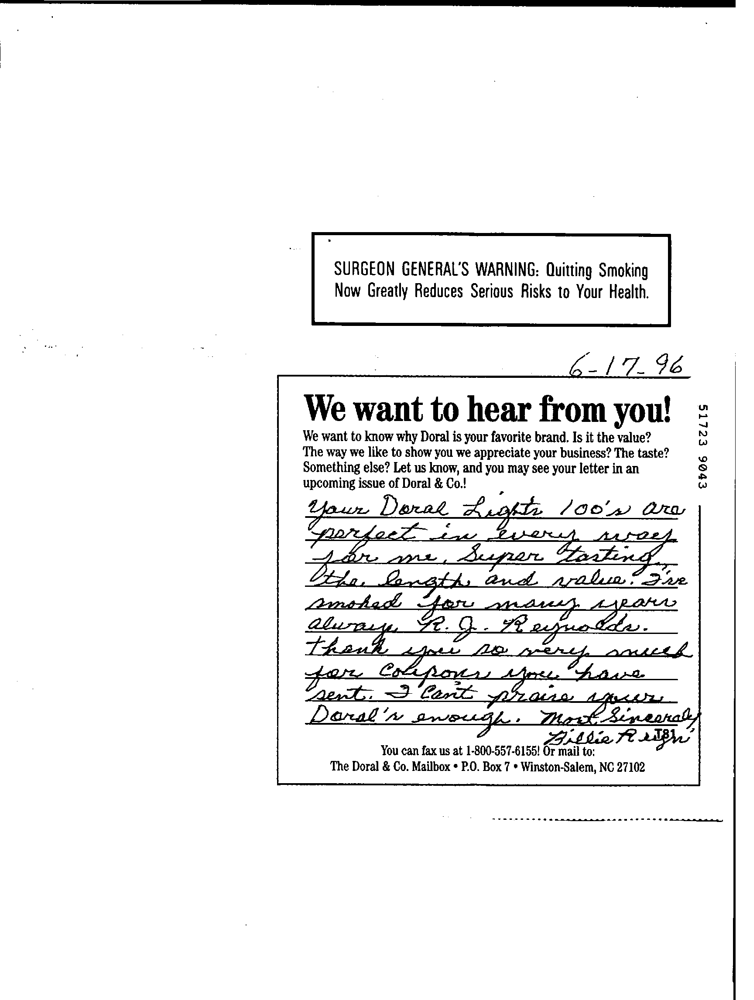 SURGEON GENERAL'S WARNING: Quitting Smoking
Now Greatly Reduces Serious Risks to Your Health.
6-17-96
We want to hear from you!
We want to know why Doral is your favorite brand. Is it the value?
The way we like to show you we appreciate your business? The taste?
Something else? Let us know, and you may see your letter in an
upcoming issue of Doral & Co.!
Your Doral Lights 100's are
perfect in every way
for me, Super tasting,
the length and value. I've
smoked for many years
always R.J. Reynolds.
Thank you so very much
for Coupons you have
sent. I Can't praise your
Doral's enough. Most Sincerely
Billie
You can fax us at 1-800-557-6155! Or mail to:
The Doral & Co. Mailbox • P.O. Box 7 • Winston-Salem, NC 27102
51723 9043